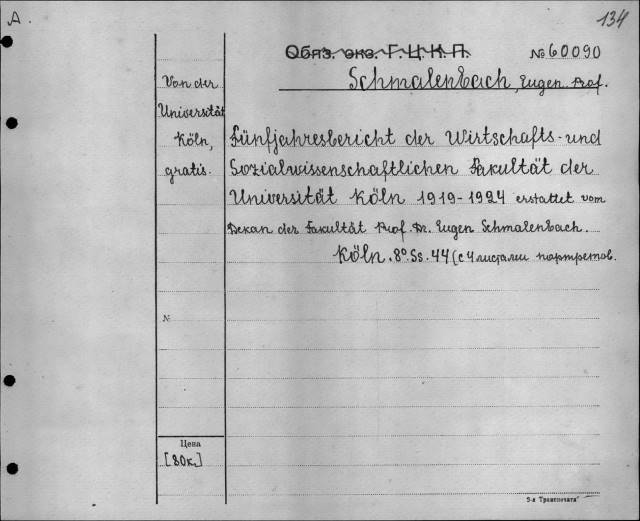 A.
134
Обяз. экз. Г.Ц.К.П.
№ 60090
Schmalenbach, Eugen Prof.
Von der
Universität
Köln,
gratis.
Fünfjahresbericht der Wirtschafts- und
Sozialwissenschaftlichen Fakultät der
Universität Köln 1919-1924 erstattet vom
Dekan der Fakultät Prof. Dr. Eugen Schmalenbach.
Köln. 8°. Ss. 44 (с 4 листами портретов.
№
Цена
[80к.]
3-я Транспечать